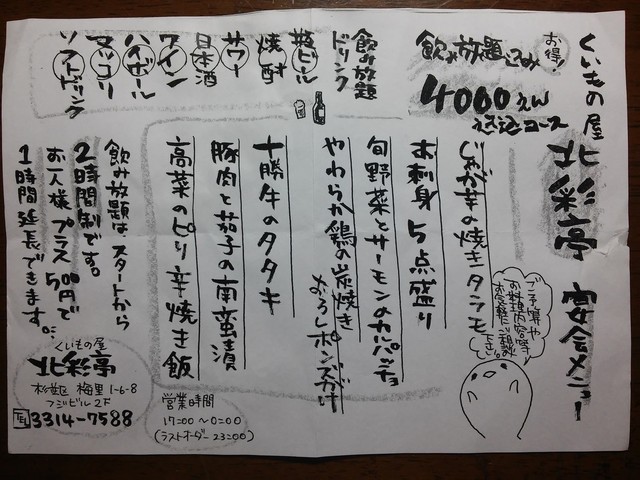 くいもの屋 北彩亭 宴会メニュー
お得!
飲み放題込み
4000えん
税込コース
じゃが芋の焼きタラモ
お刺身5点盛り
旬野菜とサーモンのカルパッチョ
やわらか鶏の炭焼き
おろしポンズがけ
十勝牛のタタキ
豚肉と茄子の南蛮漬
高菜のピリ辛焼き飯
ご予算や
お料理内容等
お気軽にご相談
下さい。
飲み放題
ドリンク
瓶ビール
焼酎
サワー
日本酒
ワイン
ハイボール
マッコリ
ソフトドリンク
飲み放題は、スタートから
2時間制です。
お一人様プラス500円で
1時間延長できます。
くいもの屋
北彩亭
杉並区 梅里1-6-8
フジビル2F
TEL 3314-7588
営業時間
17:00〜0:00
(ラストオーダー 23:00)